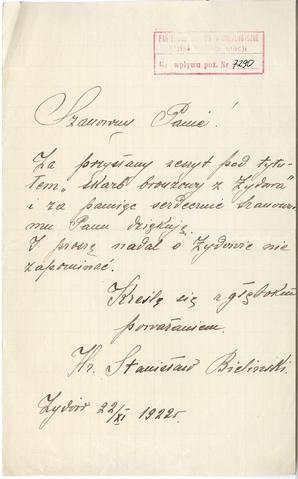 Ks. wpływu poz. Nr 7290
Szanowny Panie!
Za przysłany zeszyt pod tytu-
łem „Skarb bronzowy z Żydowa”
i za pamięć serdecznie Szanowne-
mu Panu dziękuję.
I proszę nadal o Żydowie nie
zapominać.
Kreślę się z głębokiem
poważaniem.
Hr. Stanisław Bieliński.
Żydów 22/XI 1922 r.